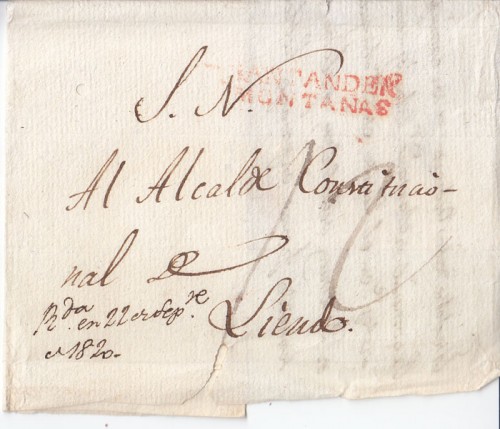 S. N.
SANTANDER
MONTAÑAS
Al Alcalde Constitucio-
nal de
Liendo.
R.da en 22 de Sep.re
de 1820.